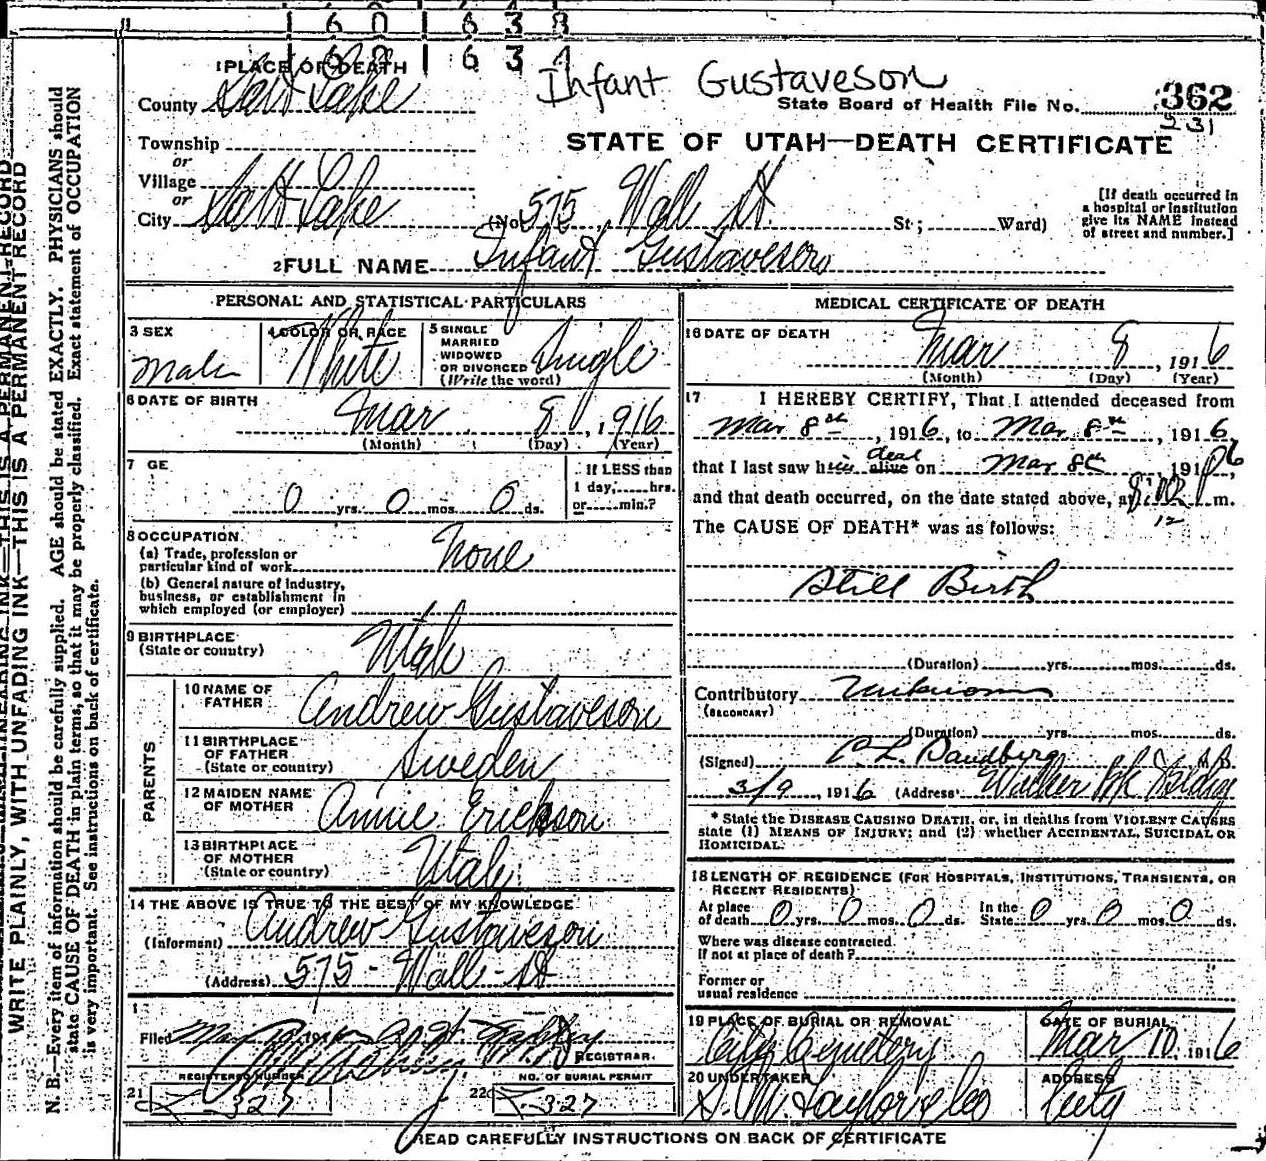 1 6 0 1 6 3 8
1 6 0 1 6 3 1
1 PLACE OF DEATH
Infant Gustaveson
County Salt Lake
State Board of Health File No. 362
231
Township
STATE OF UTAH—DEATH CERTIFICATE
or
Village
or
City Salt Lake (No 575, Wall St. St; Ward)
[If death occurred in
a hospital or institution
give its NAME instead
of street and number.]
2 FULL NAME Infant Gustaveson
PERSONAL AND STATISTICAL PARTICULARS
3 SEX
Male
4 COLOR OR RACE
White
5 SINGLE
MARRIED
WIDOWED
OR DIVORCED
(Write the word)
Single
6 DATE OF BIRTH
Mar 8, 1916
(Month) (Day) (Year)
7 GE
0 yrs. 0 mos. 0 ds.
If LESS than
1 day, hrs.
or min.?
8 OCCUPATION
(a) Trade, profession or
particular kind of work None
(b) General nature of industry,
business, or establishment in
which employed (or employer)
9 BIRTHPLACE
(State or country)
Utah
PARENTS
10 NAME OF
FATHER
Andrew Gustaveson
11 BIRTHPLACE
OF FATHER
(State or country)
Sweden
12 MAIDEN NAME
OF MOTHER
Annie Erickson
13 BIRTHPLACE
OF MOTHER
(State or country)
Utah
14 THE ABOVE IS TRUE TO THE BEST OF MY KNOWLEDGE
(Informant) Andrew Gustaveson
(Address) 575 - Wall - St
1
Filed
REGISTRAR.
REGISTERED NUMBER
21 327
NO. OF BURIAL PERMIT
22 327
MEDICAL CERTIFICATE OF DEATH
16 DATE OF DEATH
Mar 8, 1916
(Month) (Day) (Year)
17 I HEREBY CERTIFY, That I attended deceased from
Mar 8th, 1916, to Mar 8th, 1916,
that I last saw him alive dead on Mar 8th, 1916,
and that death occurred, on the date stated above, at m.
12
The CAUSE OF DEATH* was as follows:
Still Birth
(Duration) yrs. mos. ds.
Contributory Unknown
(SECONDARY)
(Duration) yrs. mos. ds.
(Signed) C. L. Sandberg M.D.
3/9, 1916 (Address) Walker Bk Bldg
* State the DISEASE CAUSING DEATH, or, in deaths from VIOLENT CAUSES
state (1) MEANS OF INJURY; and (2) whether ACCIDENTAL, SUICIDAL OR
HOMICIDAL.
18 LENGTH OF RESIDENCE (FOR HOSPITALS, INSTITUTIONS, TRANSIENTS, OR
RECENT RESIDENTS)
At place
of death 0 yrs. 0 mos. 0 ds.
In the
State 0 yrs. 0 mos. 0 ds.
Where was disease contracted.
If not at place of death?
Former or
usual residence
19 PLACE OF BURIAL OR REMOVAL
City Cemetery
DATE OF BURIAL
Mar 10, 1916
20 UNDERTAKER
S. M. Taylor & Co
ADDRESS
City
READ CAREFULLY INSTRUCTIONS ON BACK OF CERTIFICATE
WRITE PLAINLY, WITH UNFADING INK—THIS IS A PERMANENT RECORD
N. B.—Every item of information should be carefully supplied. AGE should be stated EXACTLY. PHYSICIANS should
state CAUSE OF DEATH in plain terms, so that it may be properly classified. Exact statement of OCCUPATION
is very important. See instructions on back of certificate.